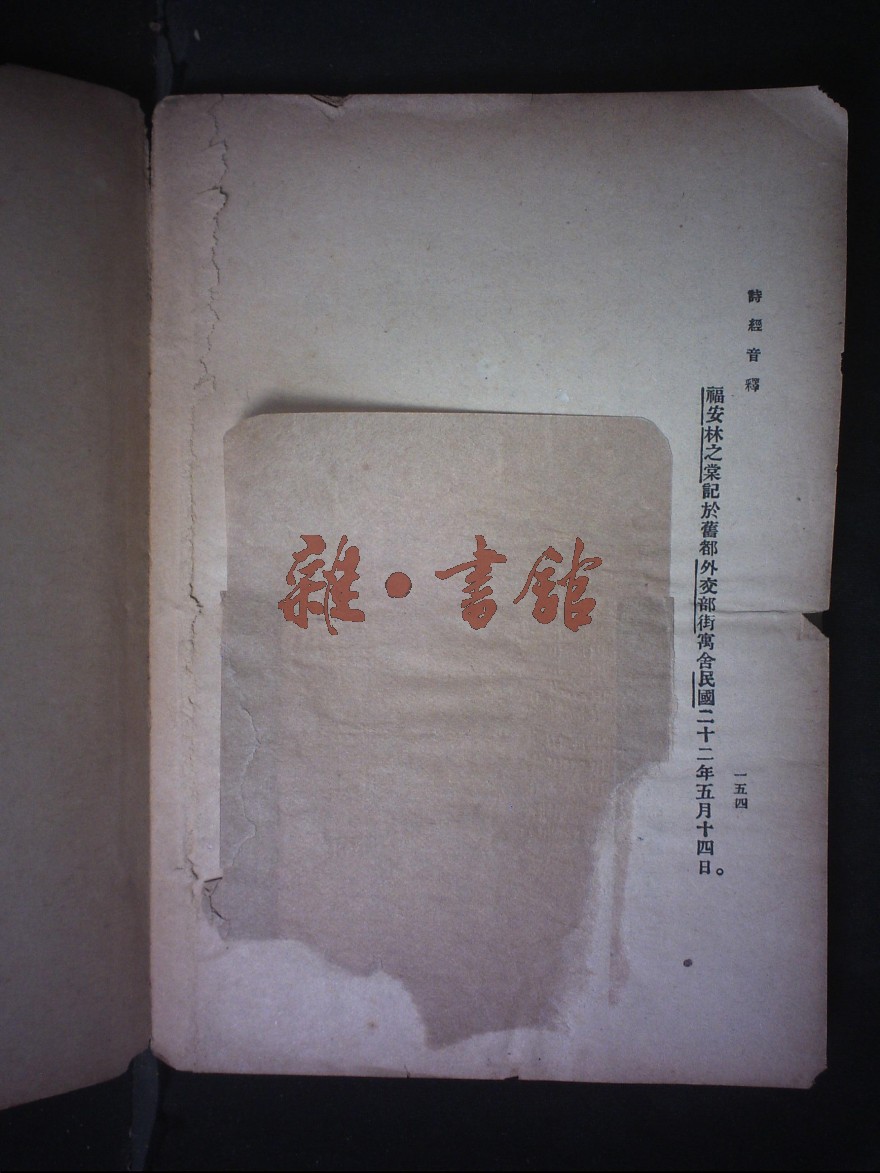 詩經音釋
福安林之棠記於舊都外交部街寓舍民國二十二年五月十四日。
一五四
雜·書館